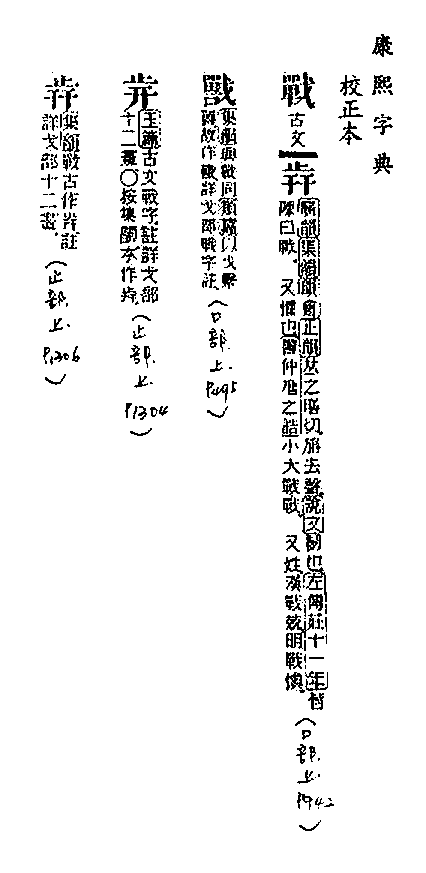 康熙字典
校正本
戰 古文
廣韻集韻韻會正韻𠀤之膳切旃去聲說文鬭也左傳莊十一年皆
陳曰戰。又懼也書仲虺之誥小大戰戰。又姓漢戰兢明戰慎。
(口部.上.
集韻與戰同
國故作戰詳戈部戰字註
(口部.上.
P495)
玉篇古文戰字註詳戈部
十二畫○按集韻本作
(止部.上.
P1304)
集韻戰古作註
詳戈部十二畫。
(止部.上.
P1306)